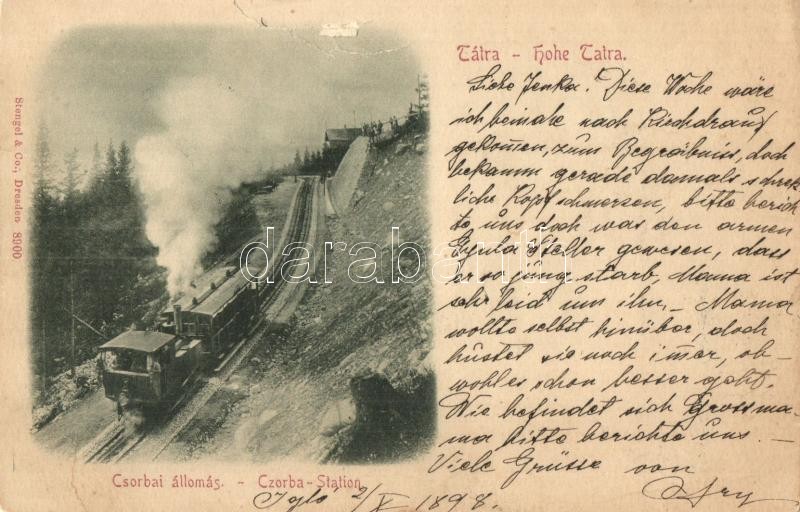 Tátra - Hohe Tatra.
Liebe Jenka! Diese Woche wäre
ich beinahe nach Kirchdrauf
gekom̄en, zum Begräbniss, doch
bekamm gerade damals schrek-
liche Kopfschmersen, bitte berich-
te uns doch was den armen
Gyula gewesen, dass
er so jung starb, Mama ist
sehr leid um ihn. - Mama
wollte selbst hinüber, doch
hüstet sie noch im̄er, ob-
wohl es schon besser geht.
Wie befindet sich Grossma-
ma bitte berichte uns. -
Viele Grüsse von
Csorbai állomás. - Czorba-Station
Igló 2/X 1898.
Stengel & Co., Dresden 8900
darabanth